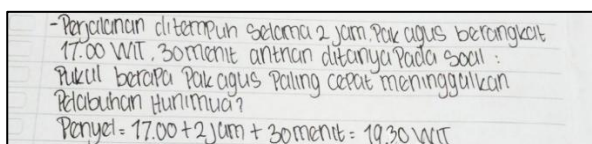 -Perjalanan ditempuh selama 2 jam. Pak agus berangkat
17.00 WIT. 30 menit antrian ditanya Pada soal :
Pukul berapa Pak agus Paling cepat meninggalkan
Pelabuhan Hunimua?
Penyel = 17.00 + 2 jam + 30 menit = 19.30 WIT